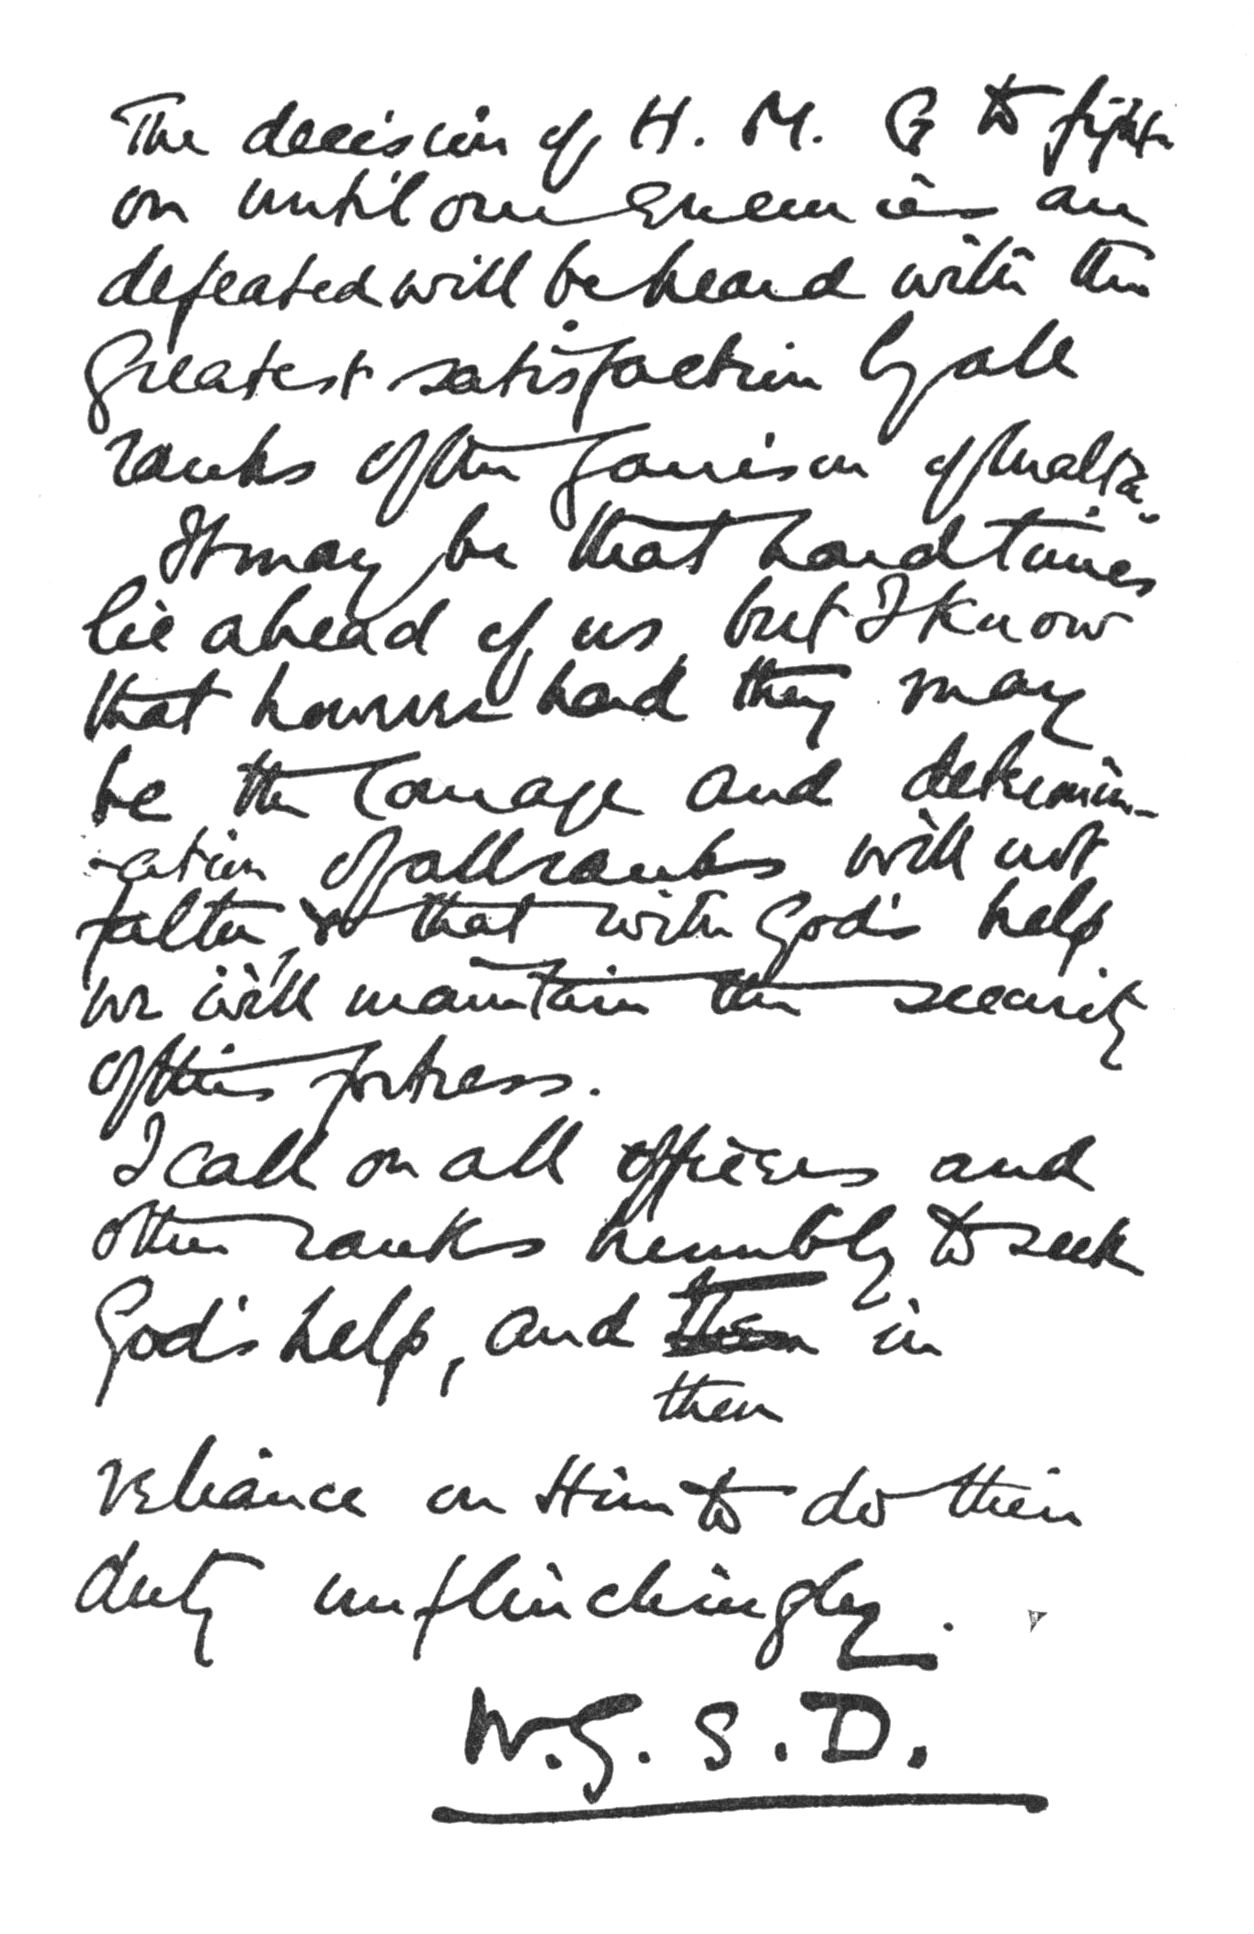 The decision of H. M. G to fight
on until our enemies are
defeated will be heard with the
greatest satisfaction by all
ranks of the Garrison of Malta.
It may be that hard times
lie ahead of us but I know
that however hard they may
be the courage and determin-
-ation of all ranks will not
falter, & that with God's help
we will maintain the security
of this fortress.
I call on all officers and
other ranks humbly to seek
God's help, and in
then
reliance on Him to do their
duty unflinchingly.
W.G.S.D.